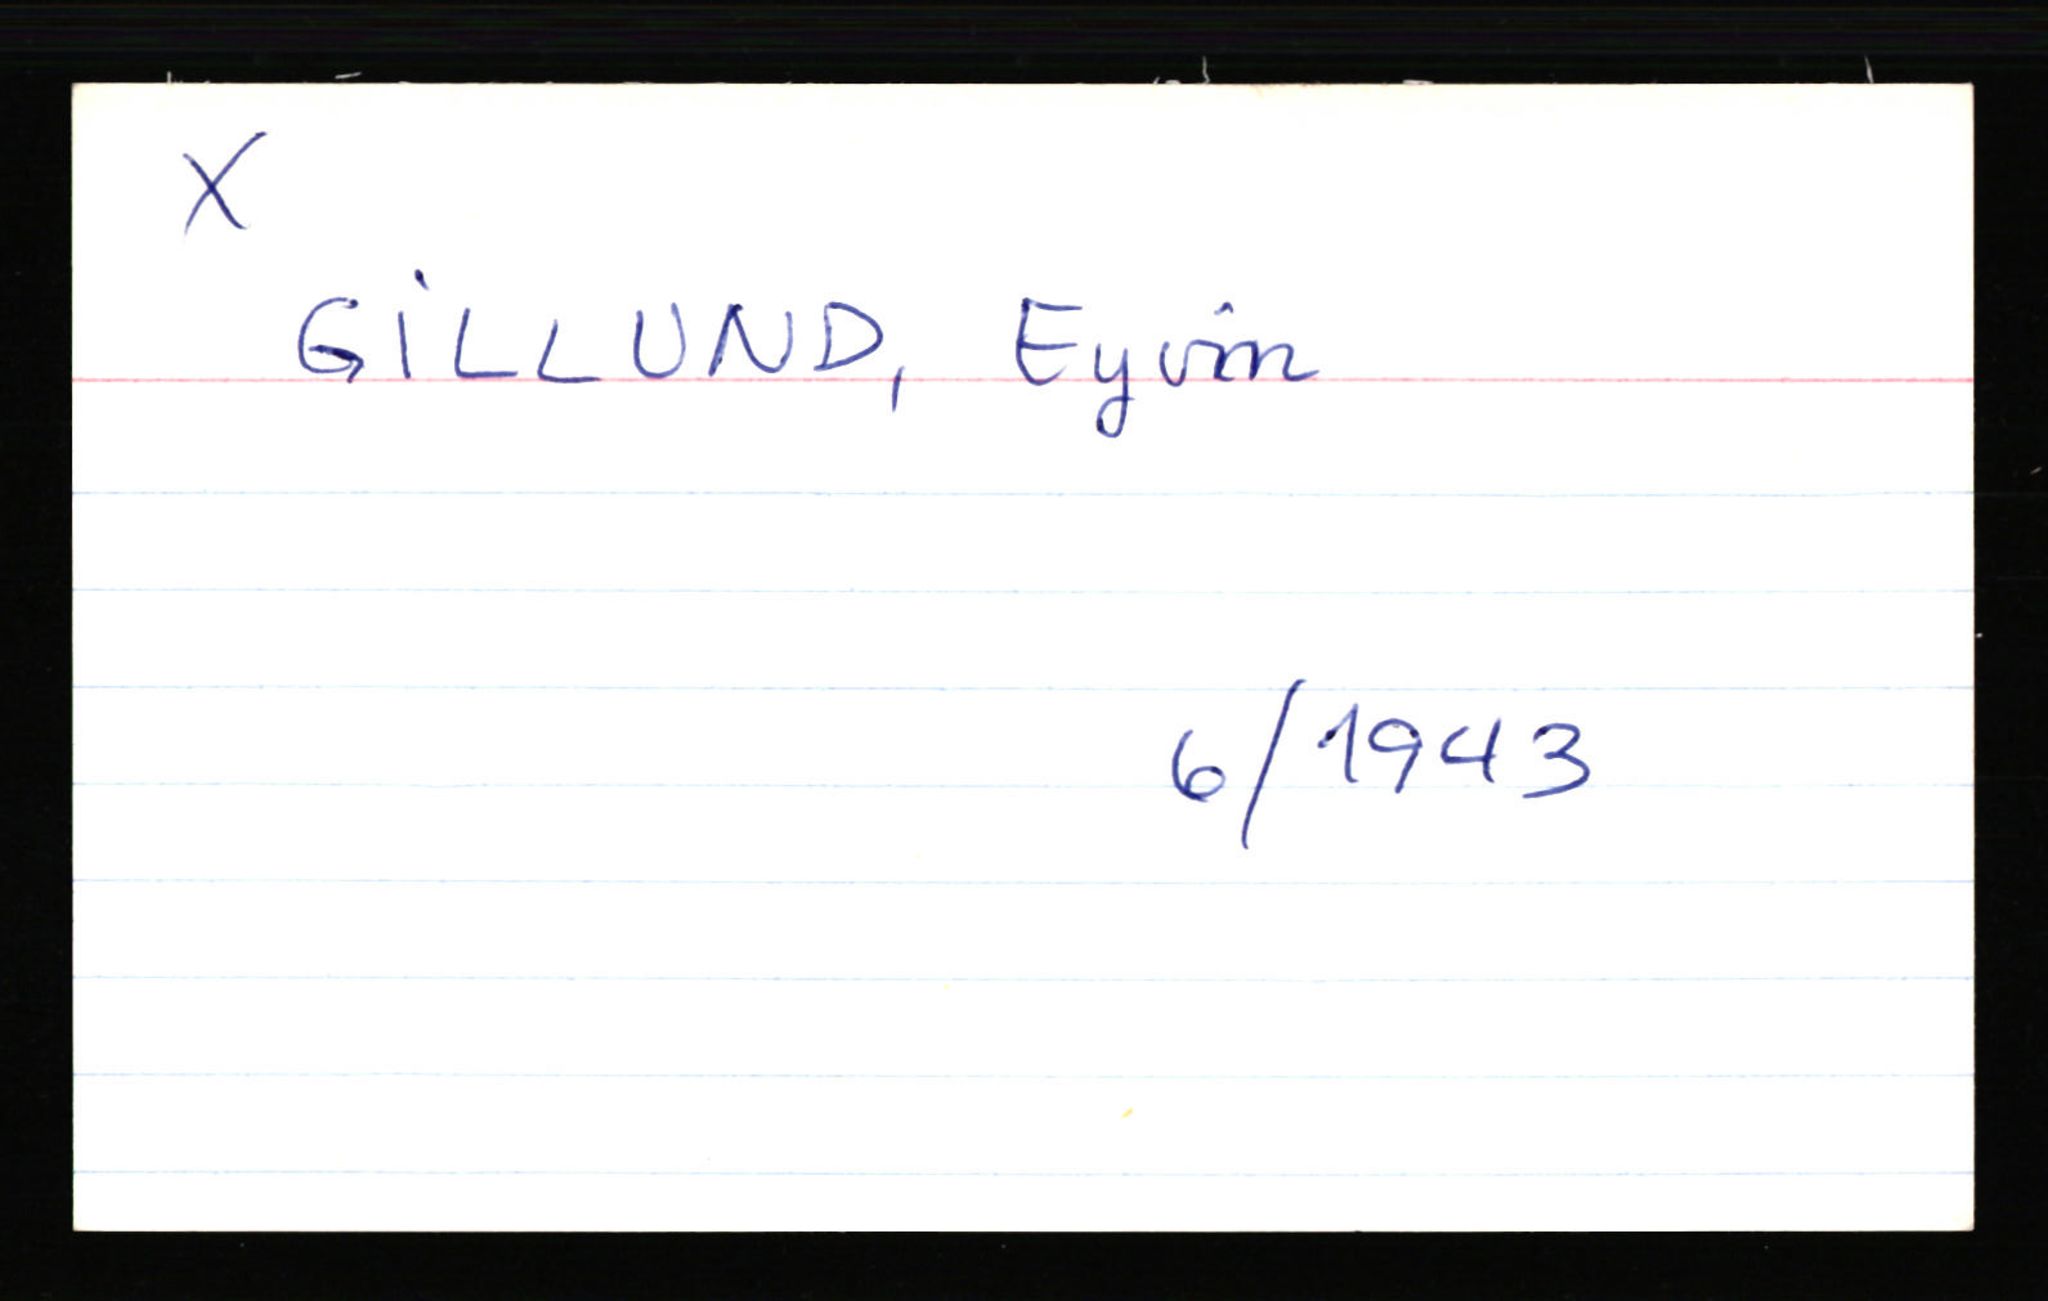 X
GiLLUND, Eyvin
6/1943